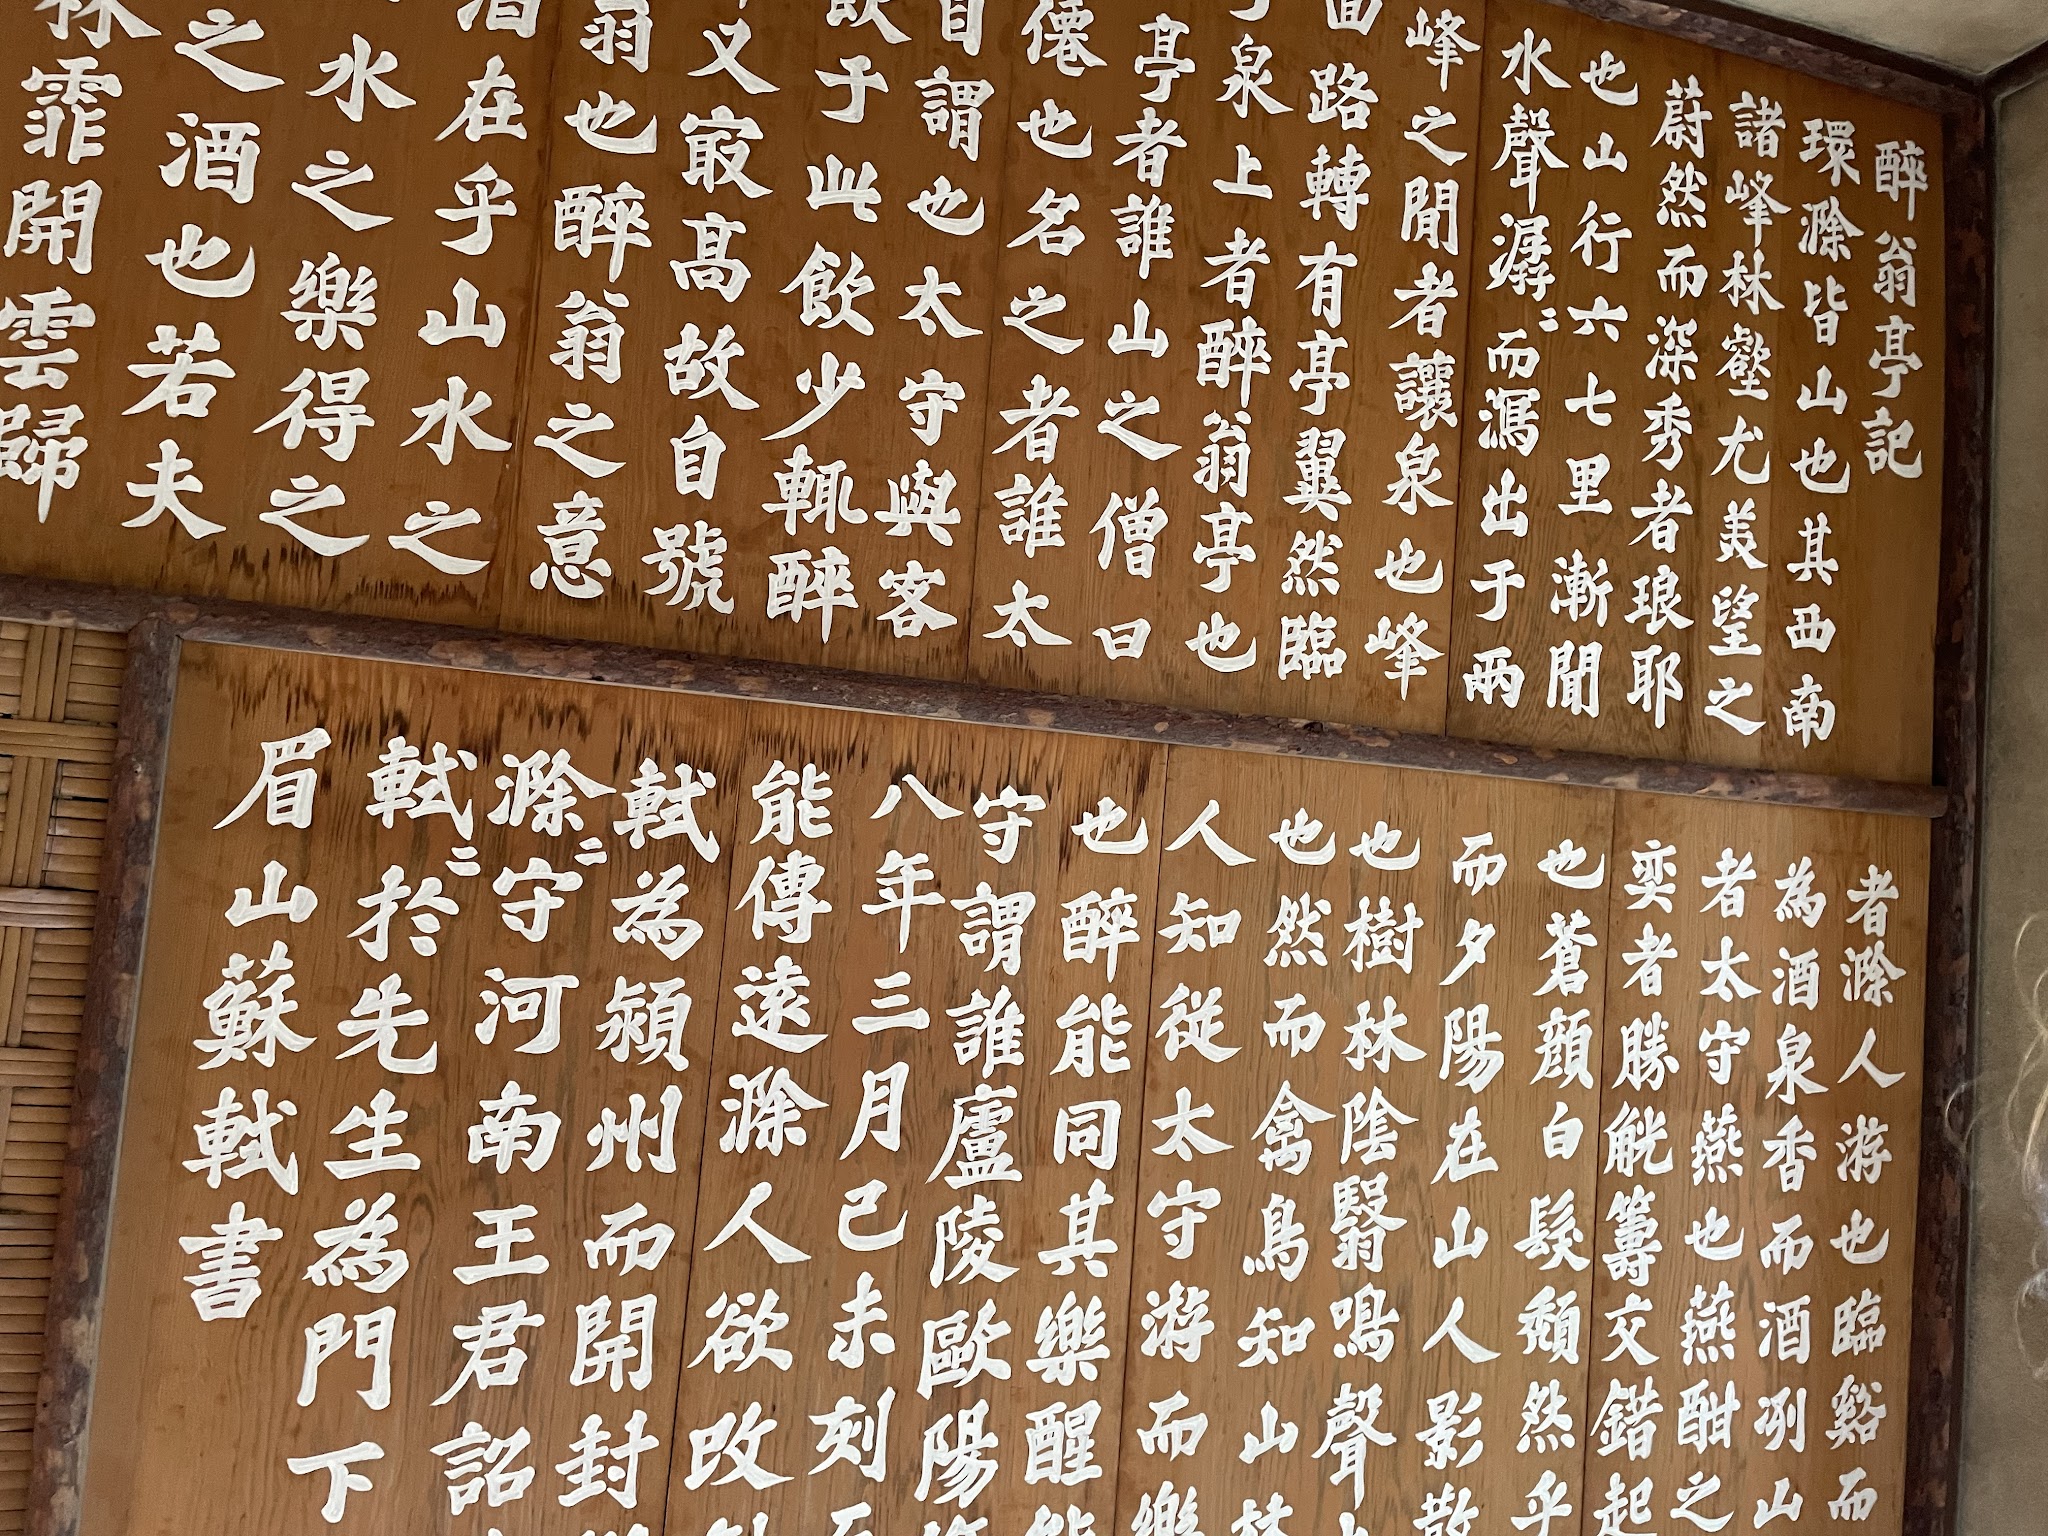 醉翁亭記
環滁皆山也其西南
諸峰林壑尤美望之
蔚然而深秀者琅耶
也山行六七里漸聞
水聲潺〻而瀉出于兩
峰之間者讓泉也峰
回路轉有亭翼然臨
于泉上者醉翁亭也
亭者誰山之僧曰
僊也名之者誰太
自謂也太守與客
飲于此飲少輒醉
又冣高故自號
翁也醉翁之意
酒在乎山水之
水之樂得之
之酒也若夫
林霏開雲歸
者滁人游也臨谿而
為酒泉香而酒冽山
者太守燕也燕酣之
奕者勝觥籌交錯起
也蒼顏白髮頹然乎
而夕陽在山人影散
也樹林陰翳鳴聲
也然而禽鳥知山林
人知從太守游而樂
也醉能同其樂醒能
守謂誰廬陵歐陽
八年三月己未刻石
能傳遠滁人欲改
軾為潁州而開封
滁〻守河南王君詔
軾〻於先生為門下
眉山蘇軾書